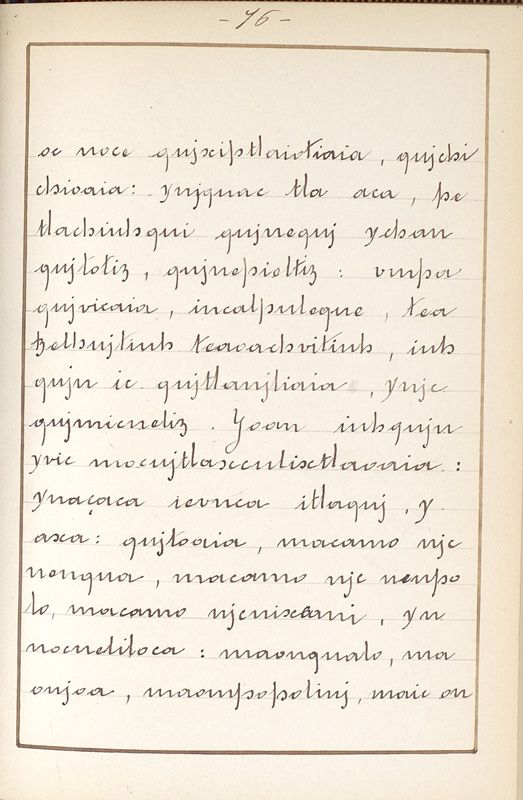 - 76 -
oc noce qujxiptlaiotiaia, qujchi
chioaia: ynjquac tla aca, pe
tlachiuhqui qujnequj ychan
qujtotiz, qujnepieltiz: vmpa
qujvicaia, incalpuleque, tea
tzelhujtiuh teaoachvitiuh, iuh
qujn ic qujtlanjliaia, ynjc
qujmicneliz. Yoan iuhqujn
yvic mocujtlaxcculixtlaoaia:
ynaçaca ievnca itlaquj, y
axa: qujtoaia, macamo njc
nenqua, macamo njc nenpo
lo, macamo njcnixcani, yn
nocneliloca: maonqualo, ma
onjoa, maompopolivj, maic on